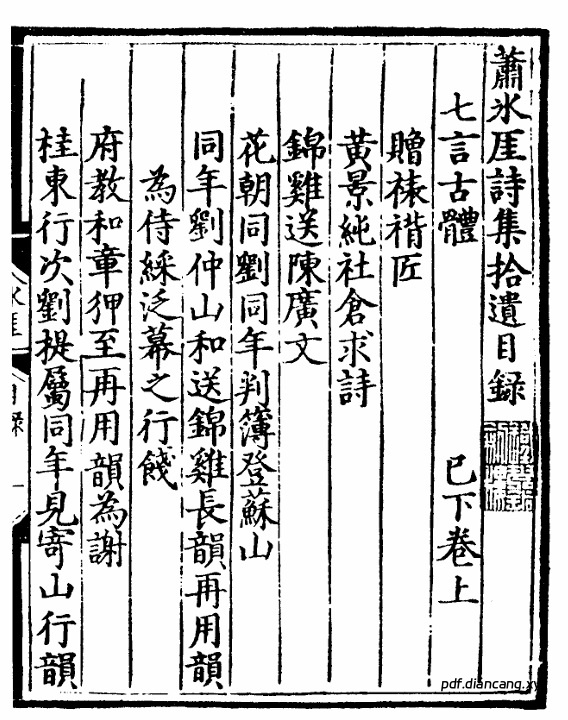 蕭冰厓詩集拾遺目錄
七言古體 已下卷上
贈裱褙匠
黃景純社倉求詩
錦雞送陳廣文
花朝同劉同年判簿登蘇山
同年劉仲山和送錦雞長韻再用韻
為侍綵泛幕之行餞
府教和章狎至再用韻為謝
桂東行次劉提屬同年見寄山行韻
pdf.diancang.xy